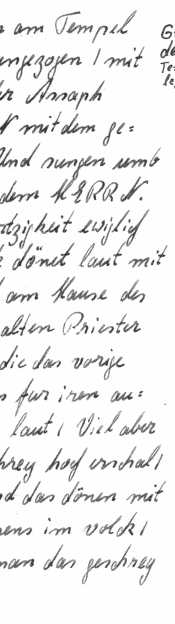 am Tempel
angezogen / mit
Assaph
mit dem ge=
Und sungen umb
dem HERRN.
ewiglich
dönet laut mit
am Hause des
alten Priester
die das vorige
fur iren au=
laut / Viel aber
hoch erschal /
das dönen mit
im volck /
das geschrey